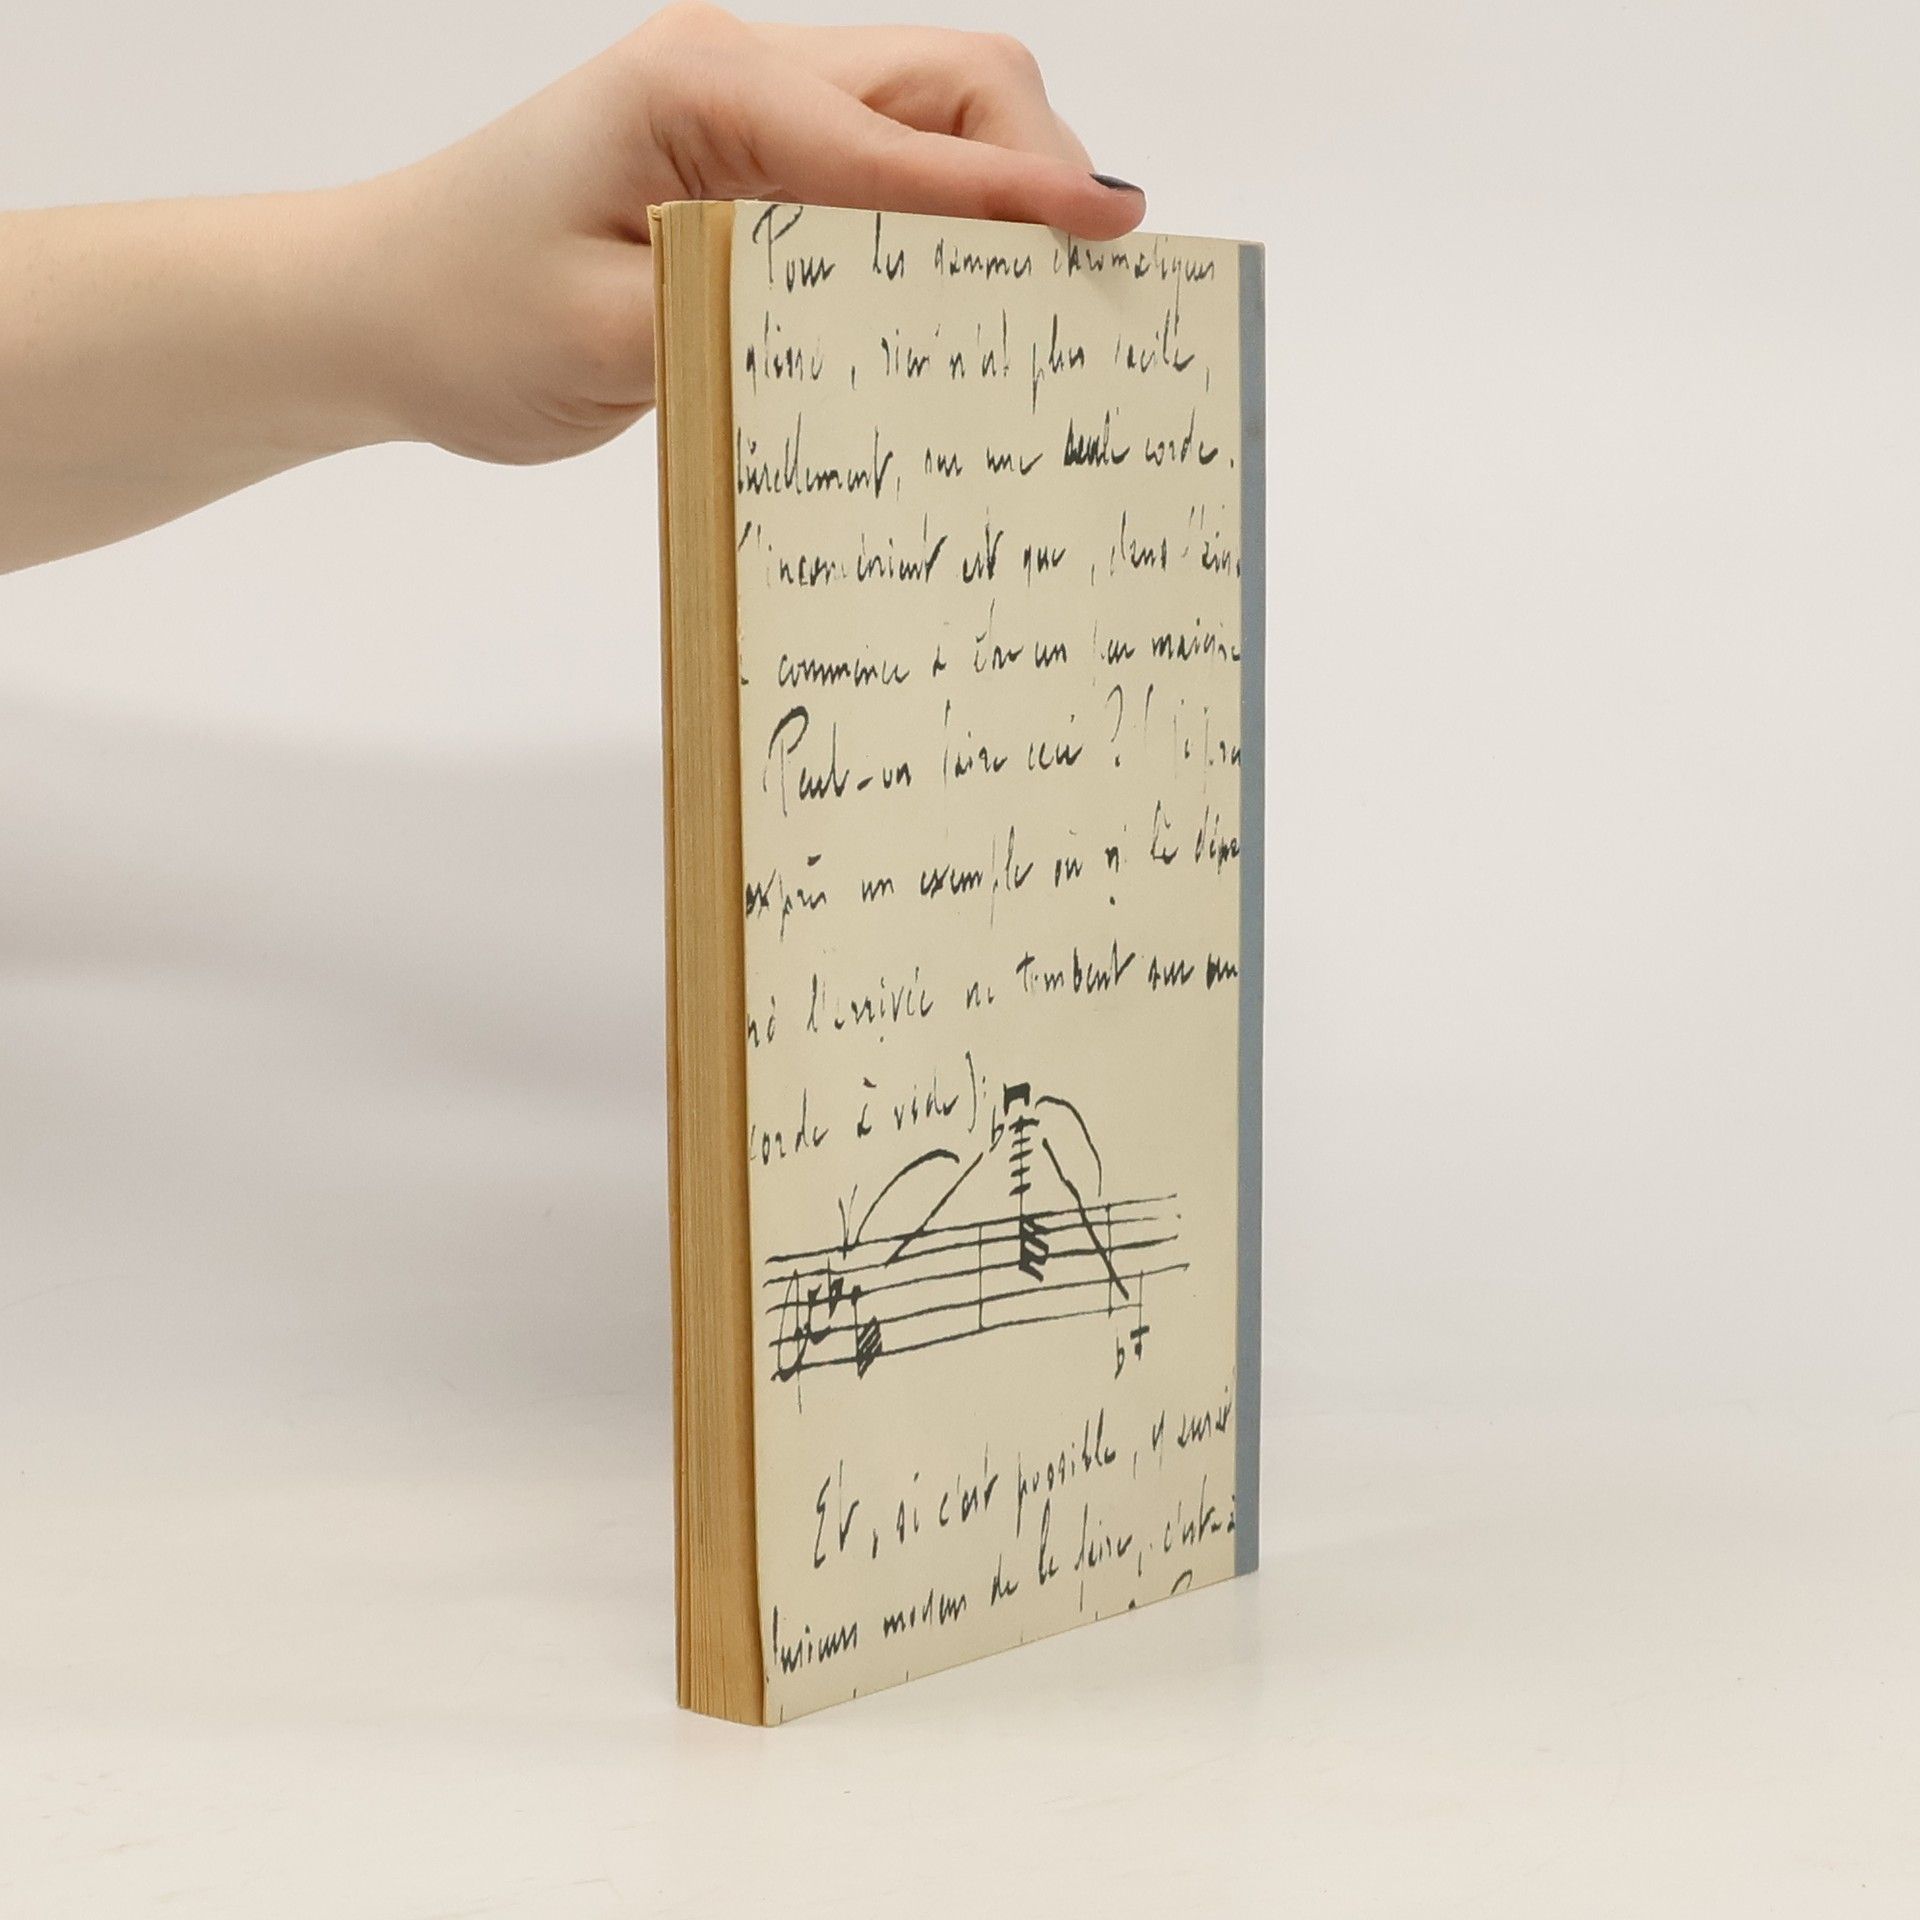 Pour les gammes chromatiques
glissé, rien n'est plus facile,
turellement, sur une seule corde.
l'inconvénient est que, dans l'aig
commence à être un peu maigre
Peut-on faire ceci ? (je pren
exprès un exemple où ni le dépa
ni l'arrivée ne tombent sur un
corde à vide) :
Et, si c'est possible, y aurait
lusieurs moyens de le faire, c'est-à